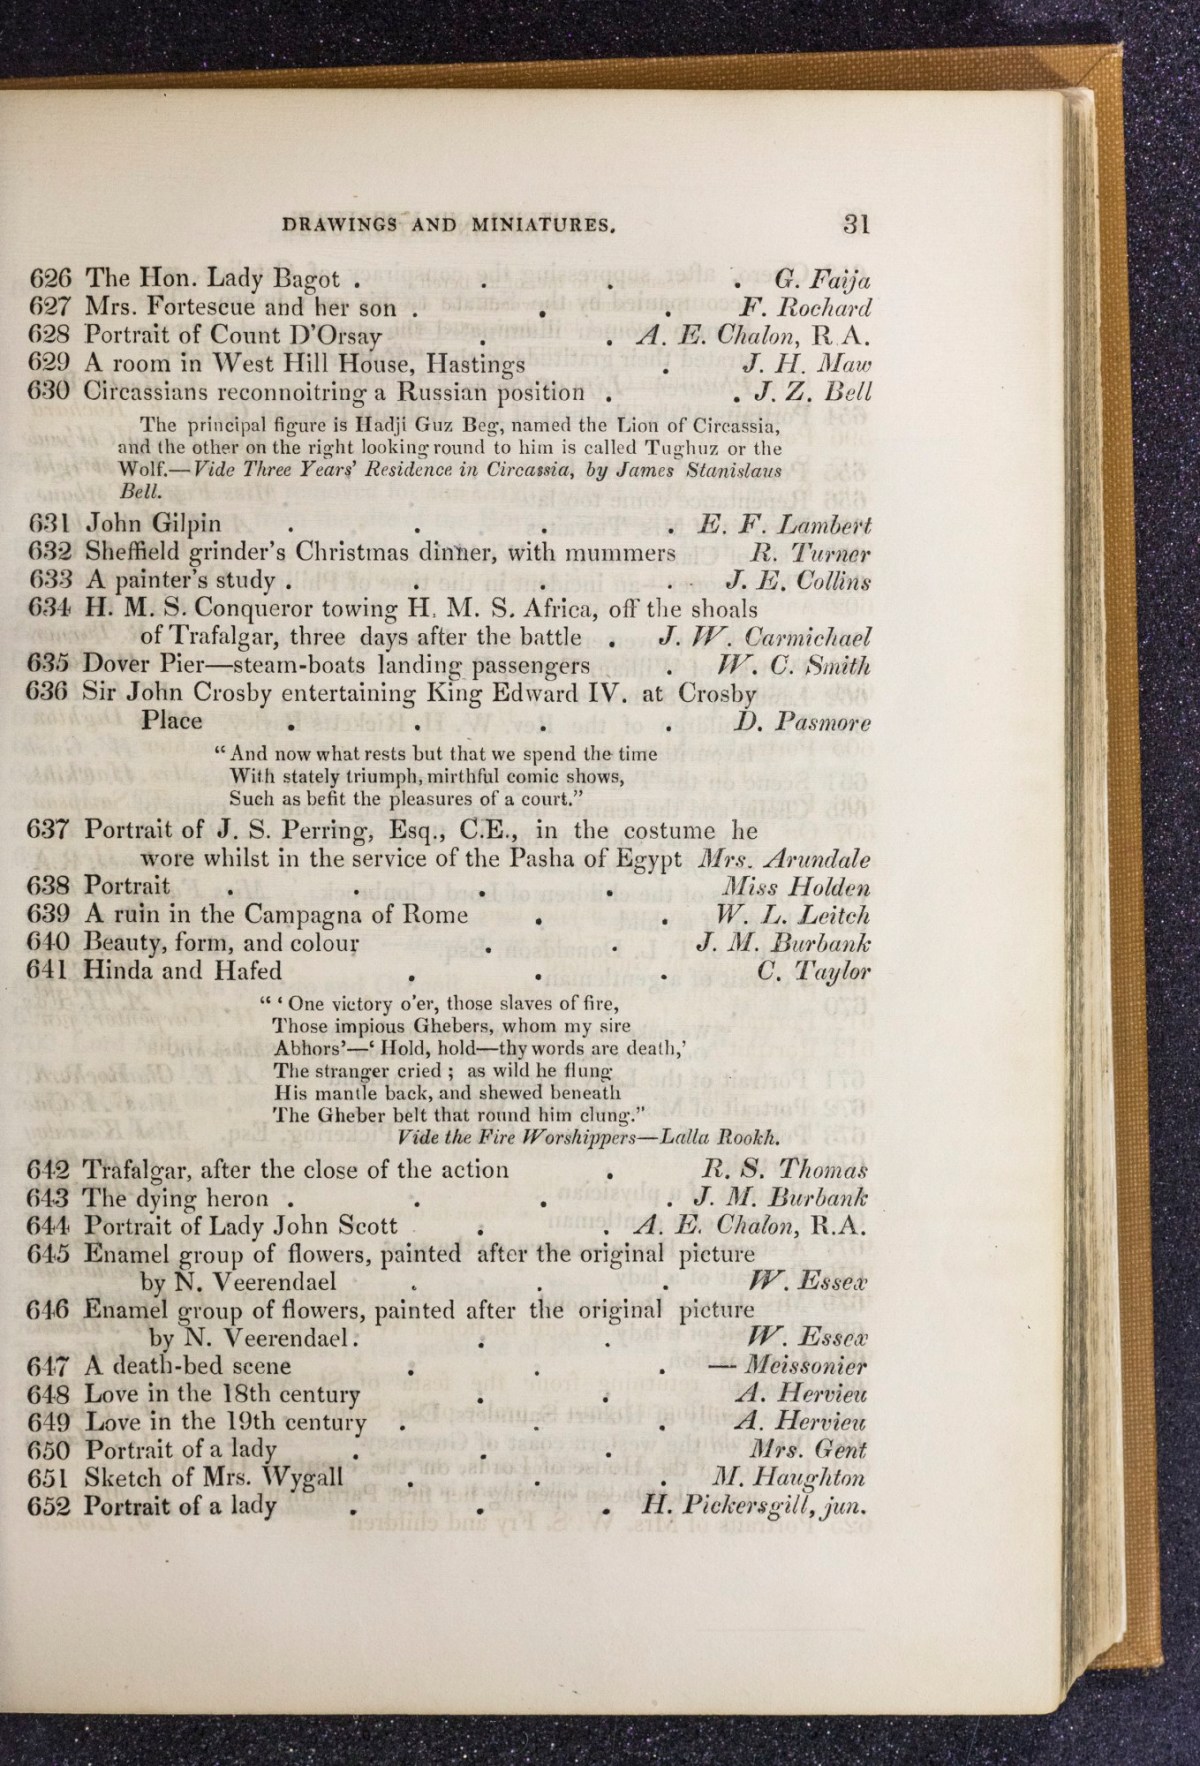 DRAWINGS AND MINIATURES. 31
626 The Hon. Lady Bagot . . . . G. Faija
627 Mrs. Fortescue and her son . . . F. Rochard
628 Portrait of Count D'Orsay . . A. E. Chalon, R.A.
629 A room in West Hill House, Hastings . J. H. Maw
630 Circassians reconnoitring a Russian position . . J. Z. Bell
The principal figure is Hadji Guz Beg, named the Lion of Circassia,
and the other on the right looking round to him is called Tughuz or the
Wolf.—Vide Three Years' Residence in Circassia, by James Stanislaus
Bell.
631 John Gilpin . . . . E. F. Lambert
632 Sheffield grinder's Christmas dinner, with mummers R. Turner
633 A painter's study . . . . J. E. Collins
634 H. M. S. Conqueror towing H. M. S. Africa, off the shoals
of Trafalgar, three days after the battle . J. W. Carmichael
635 Dover Pier—steam-boats landing passengers . W. C. Smith
636 Sir John Crosby entertaining King Edward IV. at Crosby
Place . . . . D. Pasmore
“And now what rests but that we spend the time
With stately triumph, mirthful comic shows,
Such as befit the pleasures of a court.”
637 Portrait of J. S. Perring, Esq., C.E., in the costume he
wore whilst in the service of the Pasha of Egypt Mrs. Arundale
638 Portrait . . . . Miss Holden
639 A ruin in the Campagna of Rome . . W. L. Leitch
640 Beauty, form, and colour . . J. M. Burbank
641 Hinda and Hafed . . . C. Taylor
“‘One victory o'er, those slaves of fire,
Those impious Ghebers, whom my sire
Abhors’—‘Hold, hold—thy words are death,’
The stranger cried; as wild he flung
His mantle back, and shewed beneath
The Gheber belt that round him clung.”
Vide the Fire Worshippers—Lalla Rookh.
642 Trafalgar, after the close of the action . R. S. Thomas
643 The dying heron . . . . J. M. Burbank
644 Portrait of Lady John Scott . . A. E. Chalon, R.A.
645 Enamel group of flowers, painted after the original picture
by N. Veerendael . . . W. Essex
646 Enamel group of flowers, painted after the original picture
by N. Veerendael . . . W. Essex
647 A death-bed scene . . . — Meissonier
648 Love in the 18th century . . A. Hervieu
649 Love in the 19th century . . . A. Hervieu
650 Portrait of a lady . . . Mrs. Gent
651 Sketch of Mrs. Wygall . . . M. Haughton
652 Portrait of a lady . . . H. Pickersgill, jun.